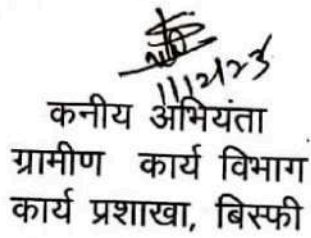 11/12/23
कनीय अभियंता
ग्रामीण कार्य विभाग
कार्य प्रशाखा, बिस्फी